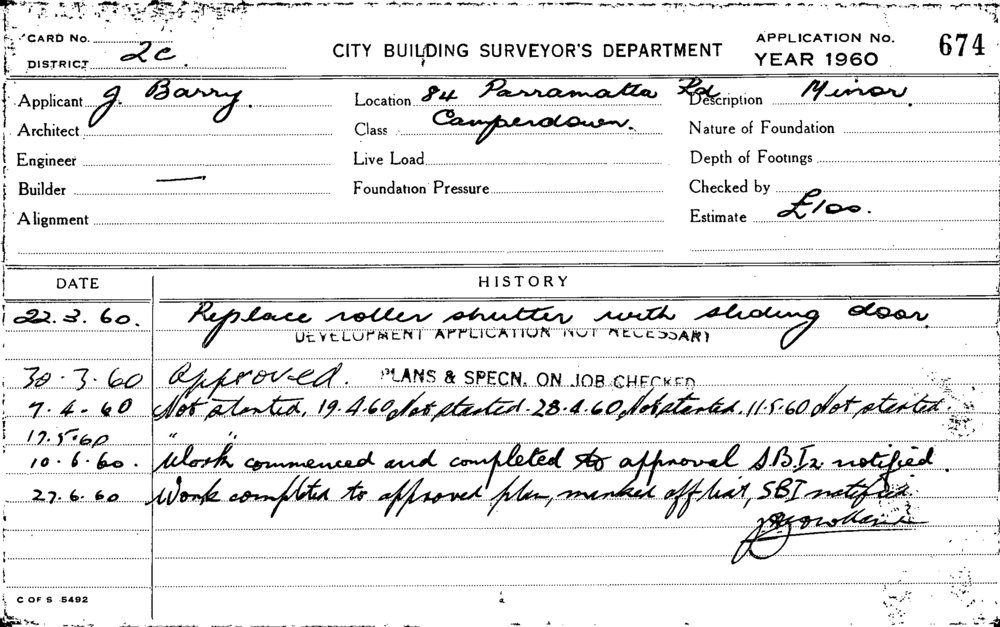 CARD No.
DISTRICT 2C.
CITY BUILDING SURVEYOR'S DEPARTMENT
APPLICATION No.
YEAR 1960
674
Applicant J. Barry. Location 84 Parramatta Rd Description Minor.
Architect Class Camperdown. Nature of Foundation
Engineer Live Load Depth of Footings
Builder — Foundation Pressure Checked by
Alignment Estimate £100.
DATE HISTORY
22.3.60. Replace roller shutter with sliding door.
DEVELOPMENT APPLICATION NOT NECESSARY
30.3.60 Approved. PLANS & SPECN. ON JOB CHECKED
7.4.60 Not started. 19.4.60 Not started. 28.4.60 Not started. 11.5.60 Not started.
17.5.60 " "
10.6.60. Work commenced and completed to approval SBI notified.
27.6.60 Work completed to approved plan, marked off list, SBI notified.
C OF S 5492